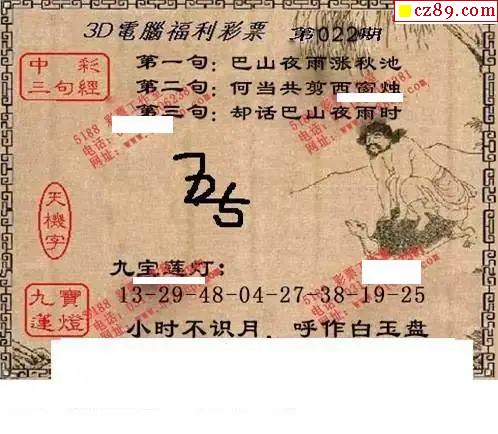 cz89.com
3D電腦福利彩票 第022期
中彩
三句經
第一句：巴山夜雨涨秋池
第二句：何当共剪西窗烛
第三句：却话巴山夜雨时
天機字
九宝莲灯：
九寶
蓮燈
13-29-48-04-27-38-19-25
小时不识月，呼作白玉盘